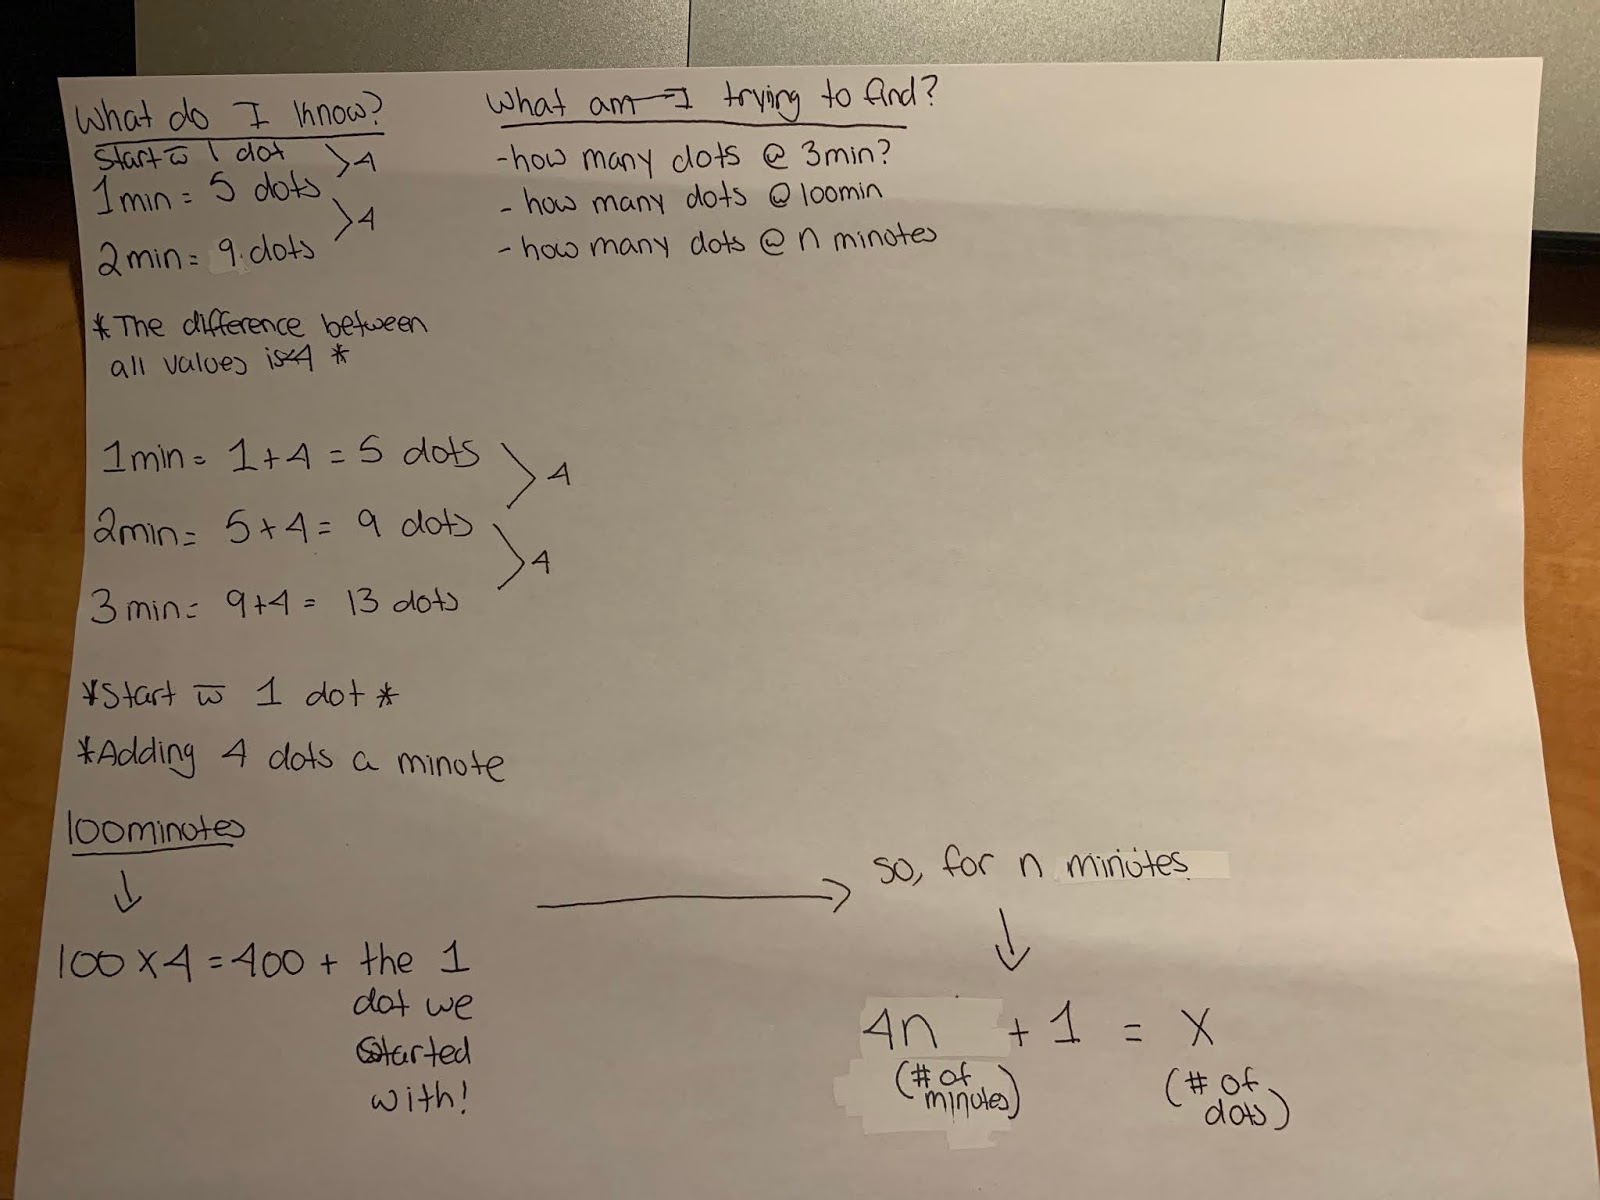 What do I know?
Start w̅ 1 dot >4
1min = 5 dots
>4
2min = 9 dots
*The difference between
all values is 4 *
What am I trying to find?
- how many dots @ 3min?
- how many dots @ 100min
- how many dots @ n minutes
1min = 1+4 = 5 dots
>4
2min = 5+4 = 9 dots
>4
3min = 9+4 = 13 dots
*Start w̅ 1 dot *
*Adding 4 dots a minute
100minutes
↓
100 x 4 = 400 + the 1
dot we
started
with!
→ so, for n minutes
↓
4n + 1 = x
(# of
minutes)
(# of
dots)